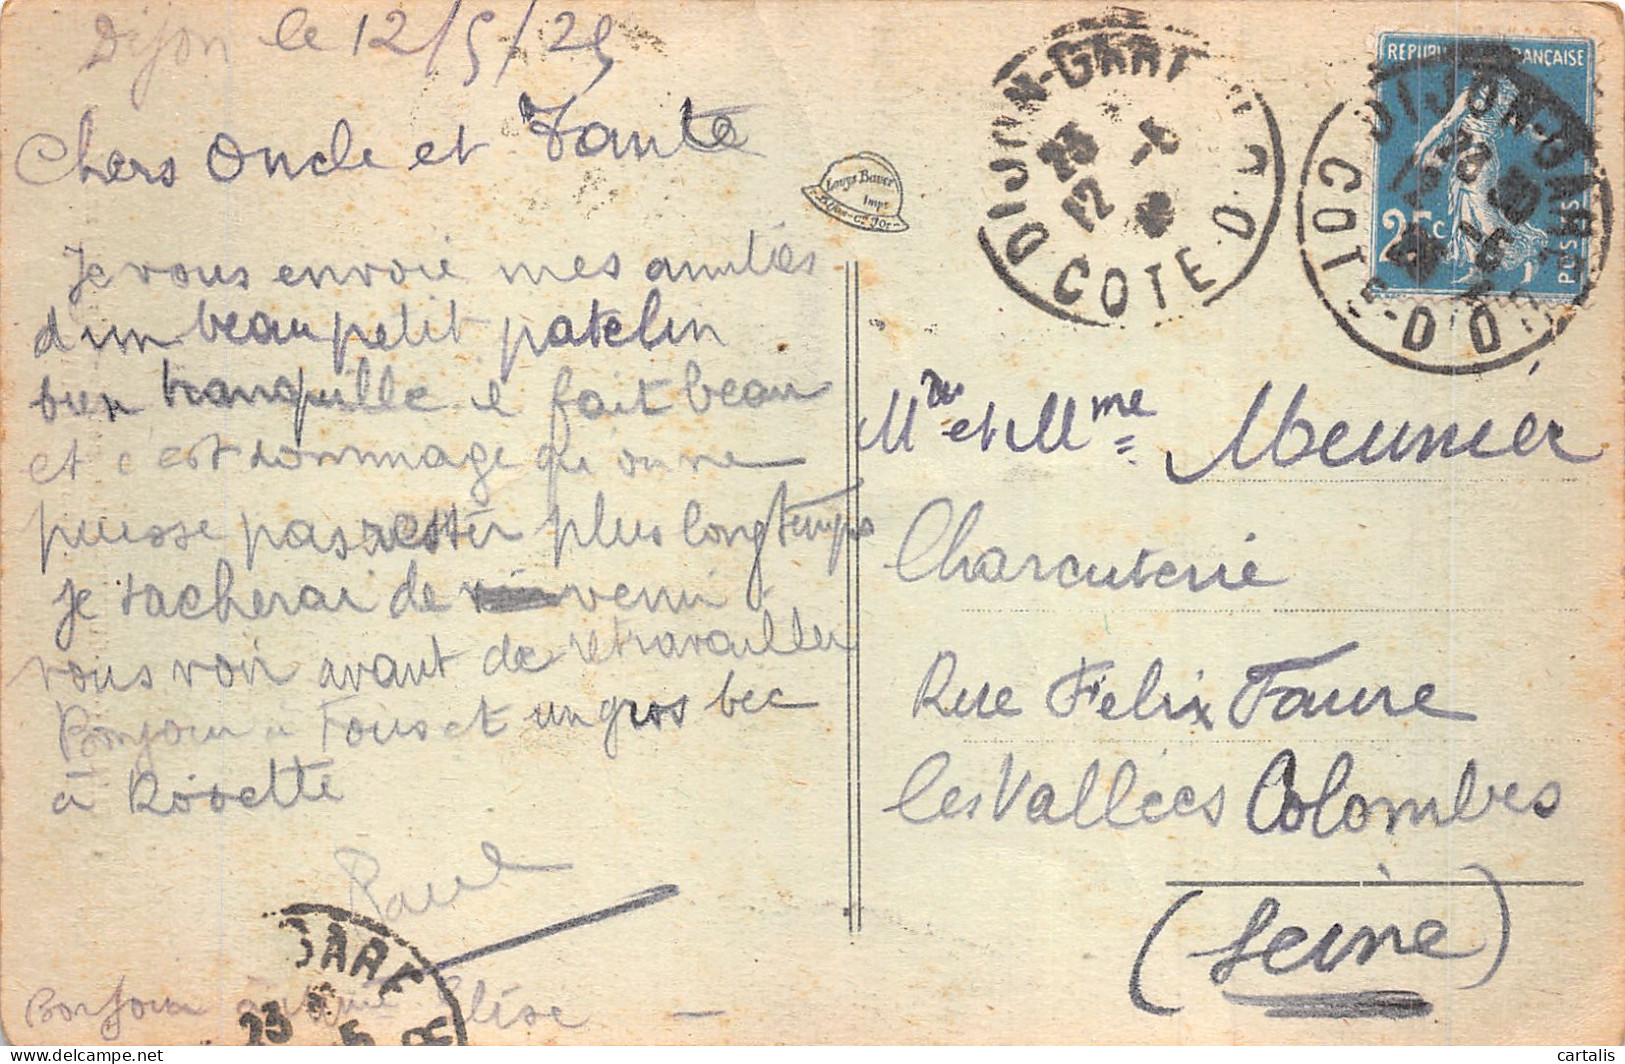 Dijon le 12/5/25
Chers Oncle et Tante
Je vous envoie mes amitiés
d'un beau petit patelin
bien tranquille il fait beau
et c'est dommage qu'on ne
puisse pas rester plus longtemps
Je tacherai de venir
vous voir avant de retravailler
Bonjour à Tous et un gros bec
à Rosette
Paul
Bonjour à Elise
Louys Bauer
Impr
Dijon-Ct d'Or
DIJON-GARE
23
12 -5
COTE D'O
REPUBLIQUE FRANÇAISE
25c
POSTES
DIJON-GARE
COTE-D'OR
Mr et Mme Meunier
Charcuterie
Rue Felix Faure
les Vallées Colombes
(Seine)
GARE
23
5
cartalis